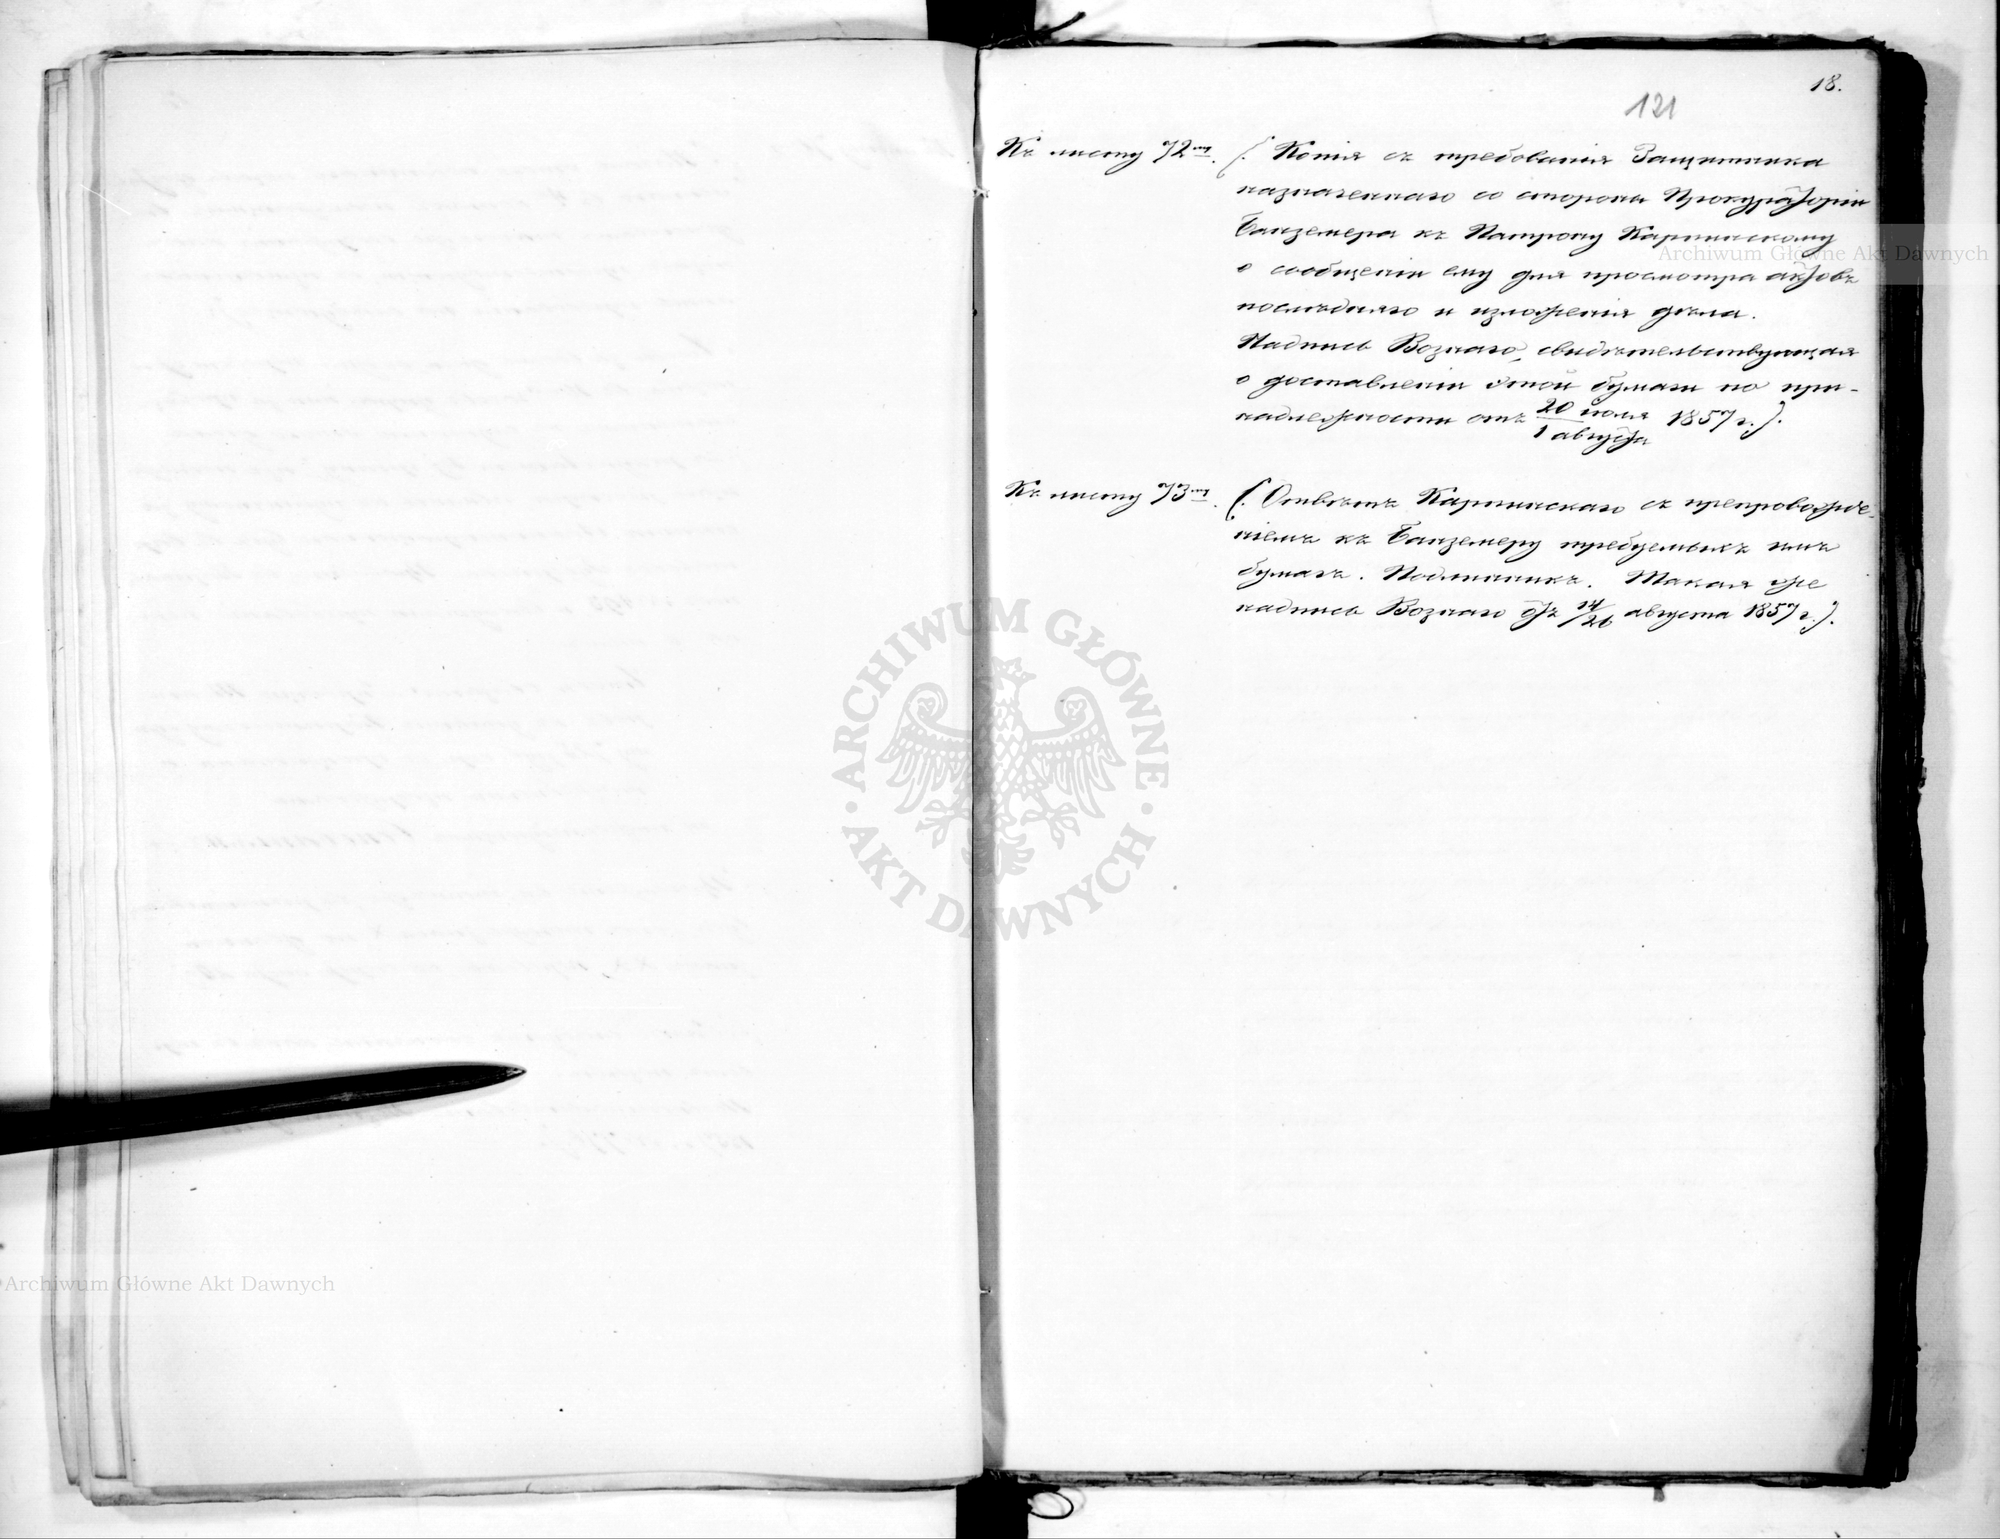 18.
121
Къ листу 72му. (. Копія съ требованія Защитника
назначеннаго со стороны Прокураторіи
Банземера къ Патрону Карпинскому
о сообщеніи ему для просмотра актовъ
послѣдняго и изложенія дѣла.
Надпись Вознаго, свидѣтельствующая
о доставленіи этой бумаги по при-
надлежности отъ 20 іюля / 1 августа 1857 г.).
Къ листу 73му. (. Отвѣтъ Карпинскаго съ препровожде-
ніемъ къ Банземеру требуемыхъ имъ
бумагъ. Подлинникъ. Такая же
надпись Вознаго отъ 14/26 августа 1857 г.).
Archiwum Główne Akt Dawnych
ARCHIWUM GŁÓWNE · AKT DAWNYCH ·
Archiwum Główne Akt Dawnych